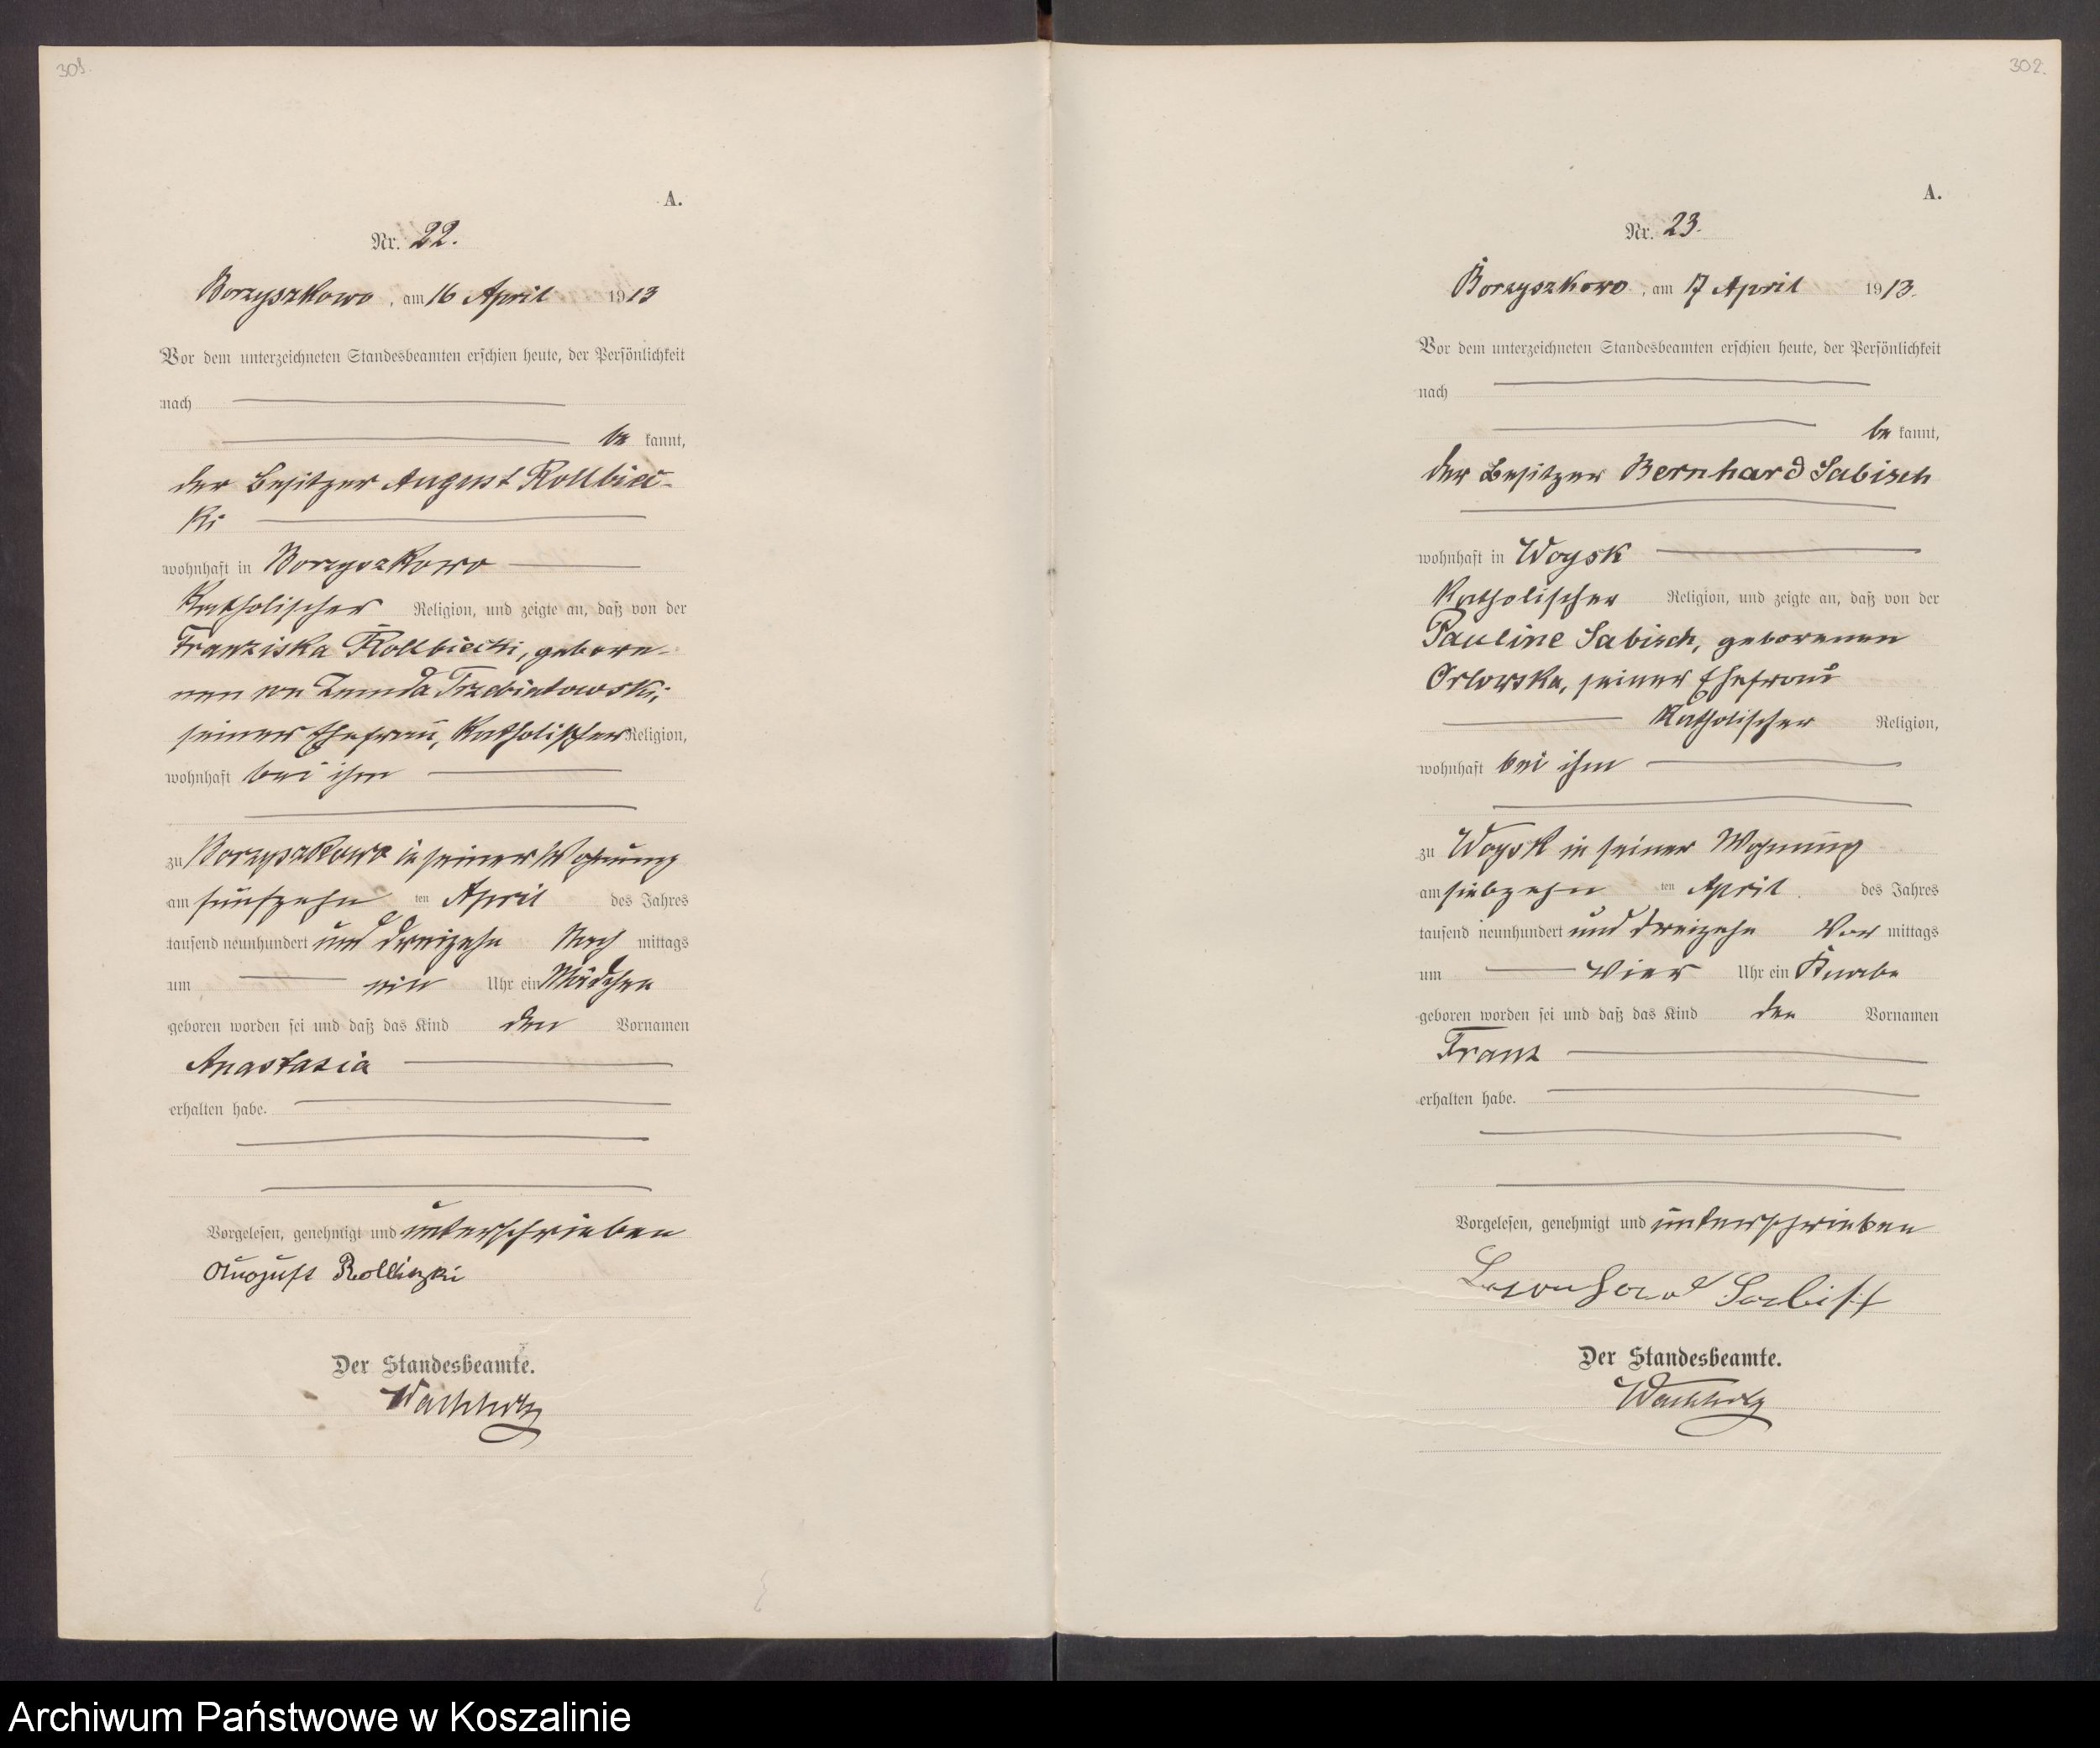 301.
A.
Nr. 22.
Borzyszkowo, am 16 April 1913
Vor dem unterzeichneten Standesbeamten erschien heute, der Persönlichkeit
nach
be kannt,
der Besitzer August Rollbiec-
ki
wohnhaft in Borzyszkowo
Katholischer Religion, und zeigte an, daß von der
Franziska Rollbiecki, gebore-
nen von Zmuda Trzebiatowski,
seiner Ehefrau, Katholischer Religion,
wohnhaft bei ihm
zu Borzyszkowo in seiner Wohnung
am fünfzehn ten April des Jahres
tausend neunhundert und dreizehn Nach mittags
um ein Uhr ein Mädchen
geboren worden sei und daß das Kind den Vornamen
Anastasia
erhalten habe.
Vorgelesen, genehmigt und unterschrieben
August
Der Standesbeamte.
Wachholz
302.
A.
Nr. 23.
Borzyszkowo, am 17 April 1913.
Vor dem unterzeichneten Standesbeamten erschien heute, der Persönlichkeit
nach
be kannt,
der Besitzer Bernhard Sabisch
wohnhaft in Woysk
Katholischer Religion, und zeigte an, daß von der
Pauline Sabisch, geborenen
Orlowska, seiner Ehefrau
Katholischer Religion,
wohnhaft bei ihm
zu Woysk in seiner Wohnung
am siebzehn ten April des Jahres
tausend neunhundert und dreizehn Vor mittags
um vier Uhr ein Knabe
geboren worden sei und daß das Kind den Vornamen
Franz
erhalten habe.
Vorgelesen, genehmigt und unterschrieben
Bernhard Sabisch
Der Standesbeamte.
Wachholz
Archiwum Państwowe w Koszalinie